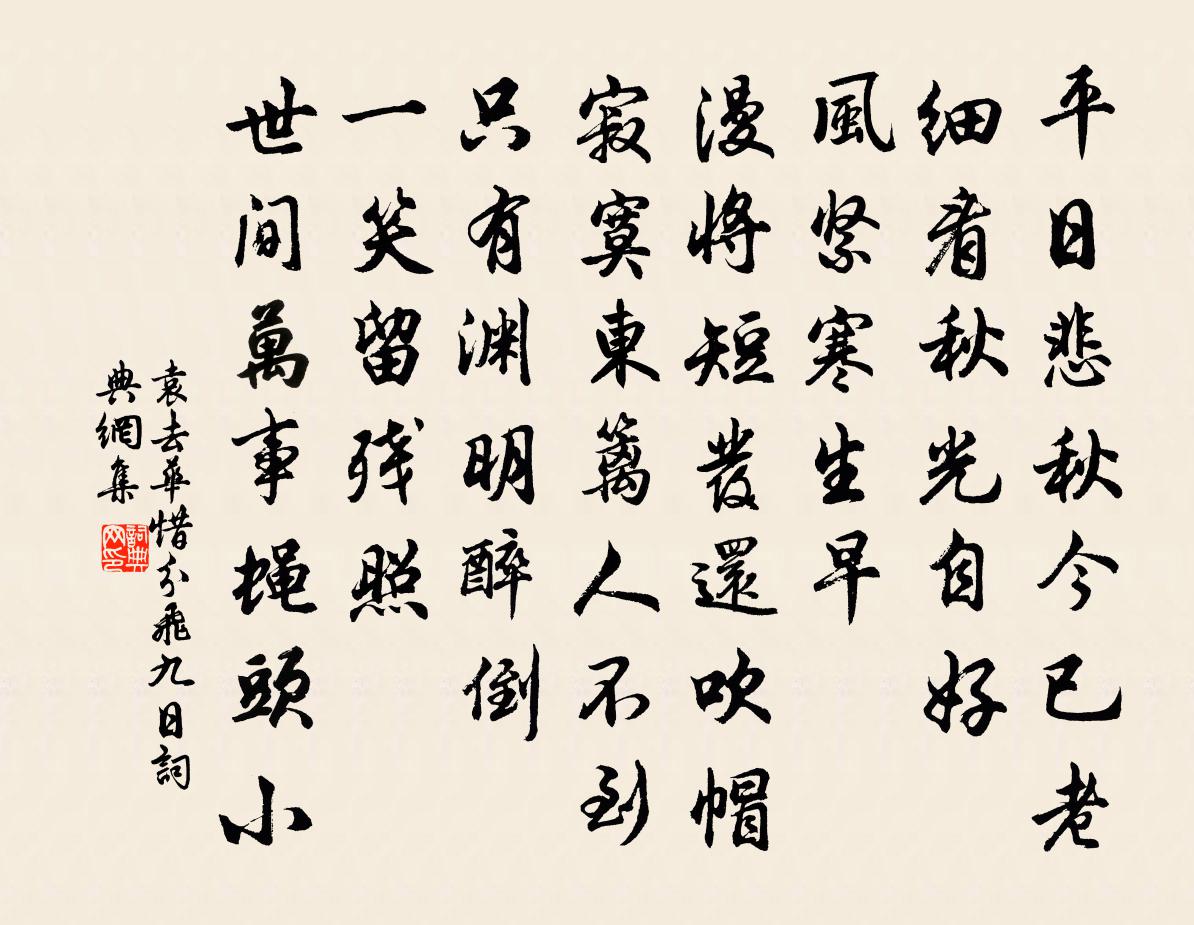 平日悲秋今已老
細看秋光自好
風緊寒生早
漫將短髮還吹帽
寂寞東籬人不到
只有渊明醉倒
一笑留残照
世间萬事蝇頭小
袁去華惜分飛九日詞
典網集
詞典网印